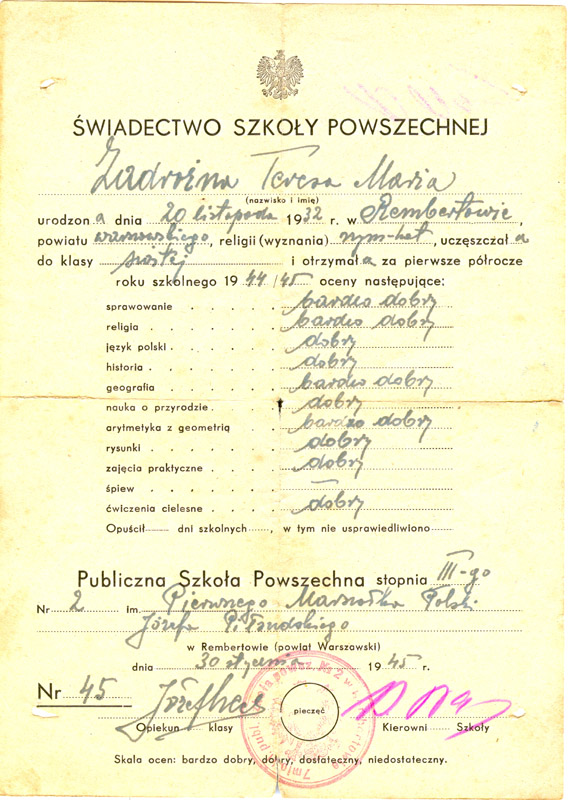 ŚWIADECTWO SZKOŁY POWSZECHNEJ
Zadrożna Teresa Maria
(nazwisko i imię)
urodzona dnia 20 listopada 1932 r. w Rembertowie,
powiatu warszawskiego, religii (wyznania) rzym-kat, uczęszczała
do klasy szóstej i otrzymała za pierwsze półrocze
roku szkolnego 1944/45 oceny następujące:
sprawowanie bardzo dobry
religia bardzo dobry
język polski dobry
historia dobry
geografia bardzo dobry
nauka o przyrodzie dobry
arytmetyka z geometrią bardzo dobry
rysunki dobry
zajęcia praktyczne dobry
śpiew —
ćwiczenia cielesne dobry
Opuścił — dni szkolnych —, w tym nie usprawiedliwiono —
Publiczna Szkoła Powszechna stopnia III-go
Nr 2 im. Pierwszego Marszałka Polski
Józefa Piłsudskiego
w Rembertowie (powiat Warszawski)
dnia 30 stycznia 1945 r.
Nr 45
pieczęć
Opiekun klasy Kierowni Szkoły
Skala ocen: bardzo dobry, dobry, dostateczny, niedostateczny.